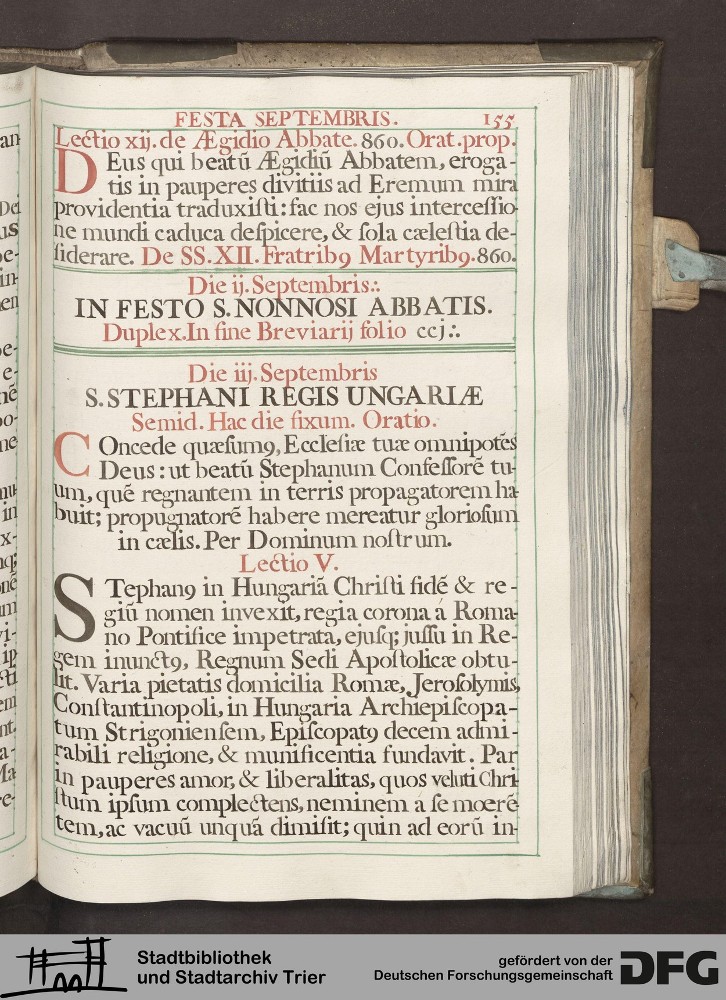 FESTA SEPTEMBRIS. 155
Lectio xij. de Ægidio Abbate. 860. Orat. prop.
DEus qui beatū Ægidiū Abbatem, eroga-
tis in pauperes divitiis ad Eremum mira
providentia traduxiſti: fac nos ejus interceſſio-
ne mundi caduca deſpicere, & ſola cæleſtia de-
ſiderare. De SS. XII. Fratribꝰ Martyribꝰ. 860.
Die ij. Septembris.·.
IN FESTO S. NONNOSI ABBATIS.
Duplex. In fine Breviarij folio ccj.·.
Die iij. Septembris
S. STEPHANI REGIS UNGARIÆ
Semid. Hac die fixum. Oratio.
COncede quæſumꝰ, Eccleſiæ tuæ omnipotēs
Deus: ut beatū Stephanum Confeſſorē tu-
um, quē regnantem in terris propagatorem ha-
buit; propugnatorē habere mereatur glorioſum
in cælis. Per Dominum noſtrum.
Lectio V.
STephanꝰ in Hungariā Chriſti fidē & re-
giū nomen invexit, regia corona á Roma-
no Pontifice impetrata, ejuſq; juſſu in Re-
gem inunctꝰ, Regnum Sedi Apoſtolicæ obtu-
lit. Varia pietatis domicilia Romæ, Jeroſolymis,
Conſtantinopoli, in Hungaria Archiepiſcopa-
tum Strigonienſem, Epiſcopatꝰ decem admi-
rabili religione, & munificentia fundavit. Par
in pauperes amor, & liberalitas, quos veluti Chri-
ſtum ipſum complectens, neminem á ſe moerē-
tem, ac vacuū unquā dimiſit; quin ad eorū in-
Stadtbibliothek
und Stadtarchiv Trier
gefördert von der
Deutschen Forschungsgemeinschaft
DFG